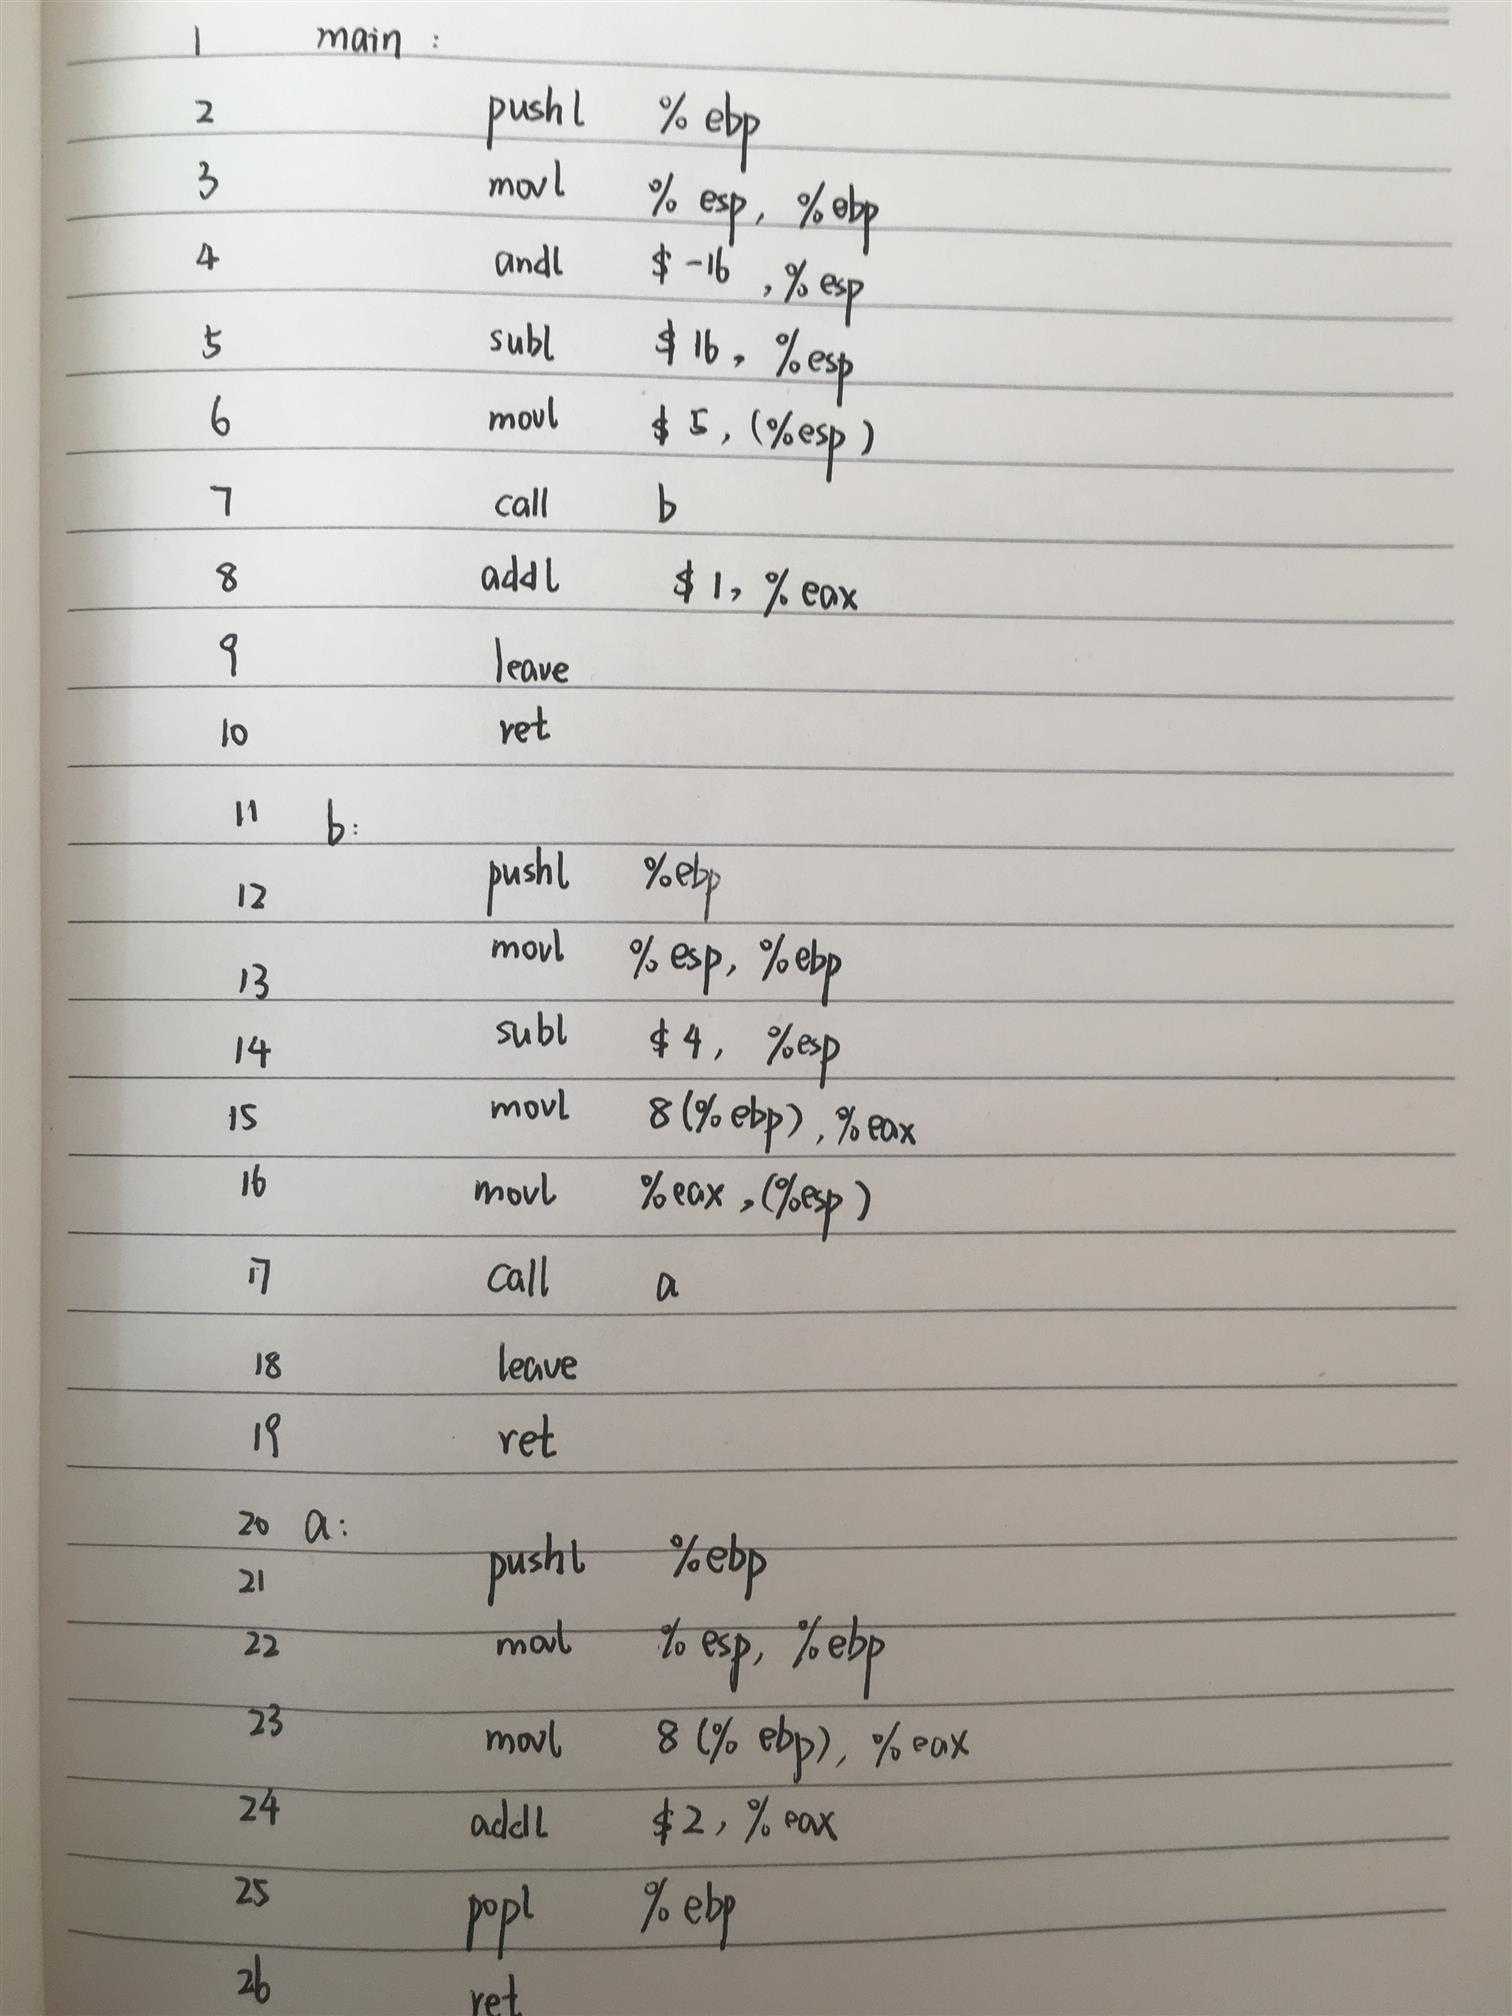 1 main :
2 pushl % ebp
3 movl % esp, % ebp
4 andl $ -16 , % esp
5 subl $ 16, % esp
6 movl $ 5, (%esp)
7 call b
8 addl $ 1, % eax
9 leave
10 ret
11 b:
12 pushl %ebp
13 movl % esp, % ebp
14 subl $ 4, %esp
15 movl 8(% ebp), % eax
16 movl % eax, (%esp)
17 call a
18 leave
19 ret
20 a:
21 pushl %ebp
22 movl % esp, % ebp
23 movl 8 (% ebp), % eax
24 addl $2, % eax
25 popl % ebp
26 ret